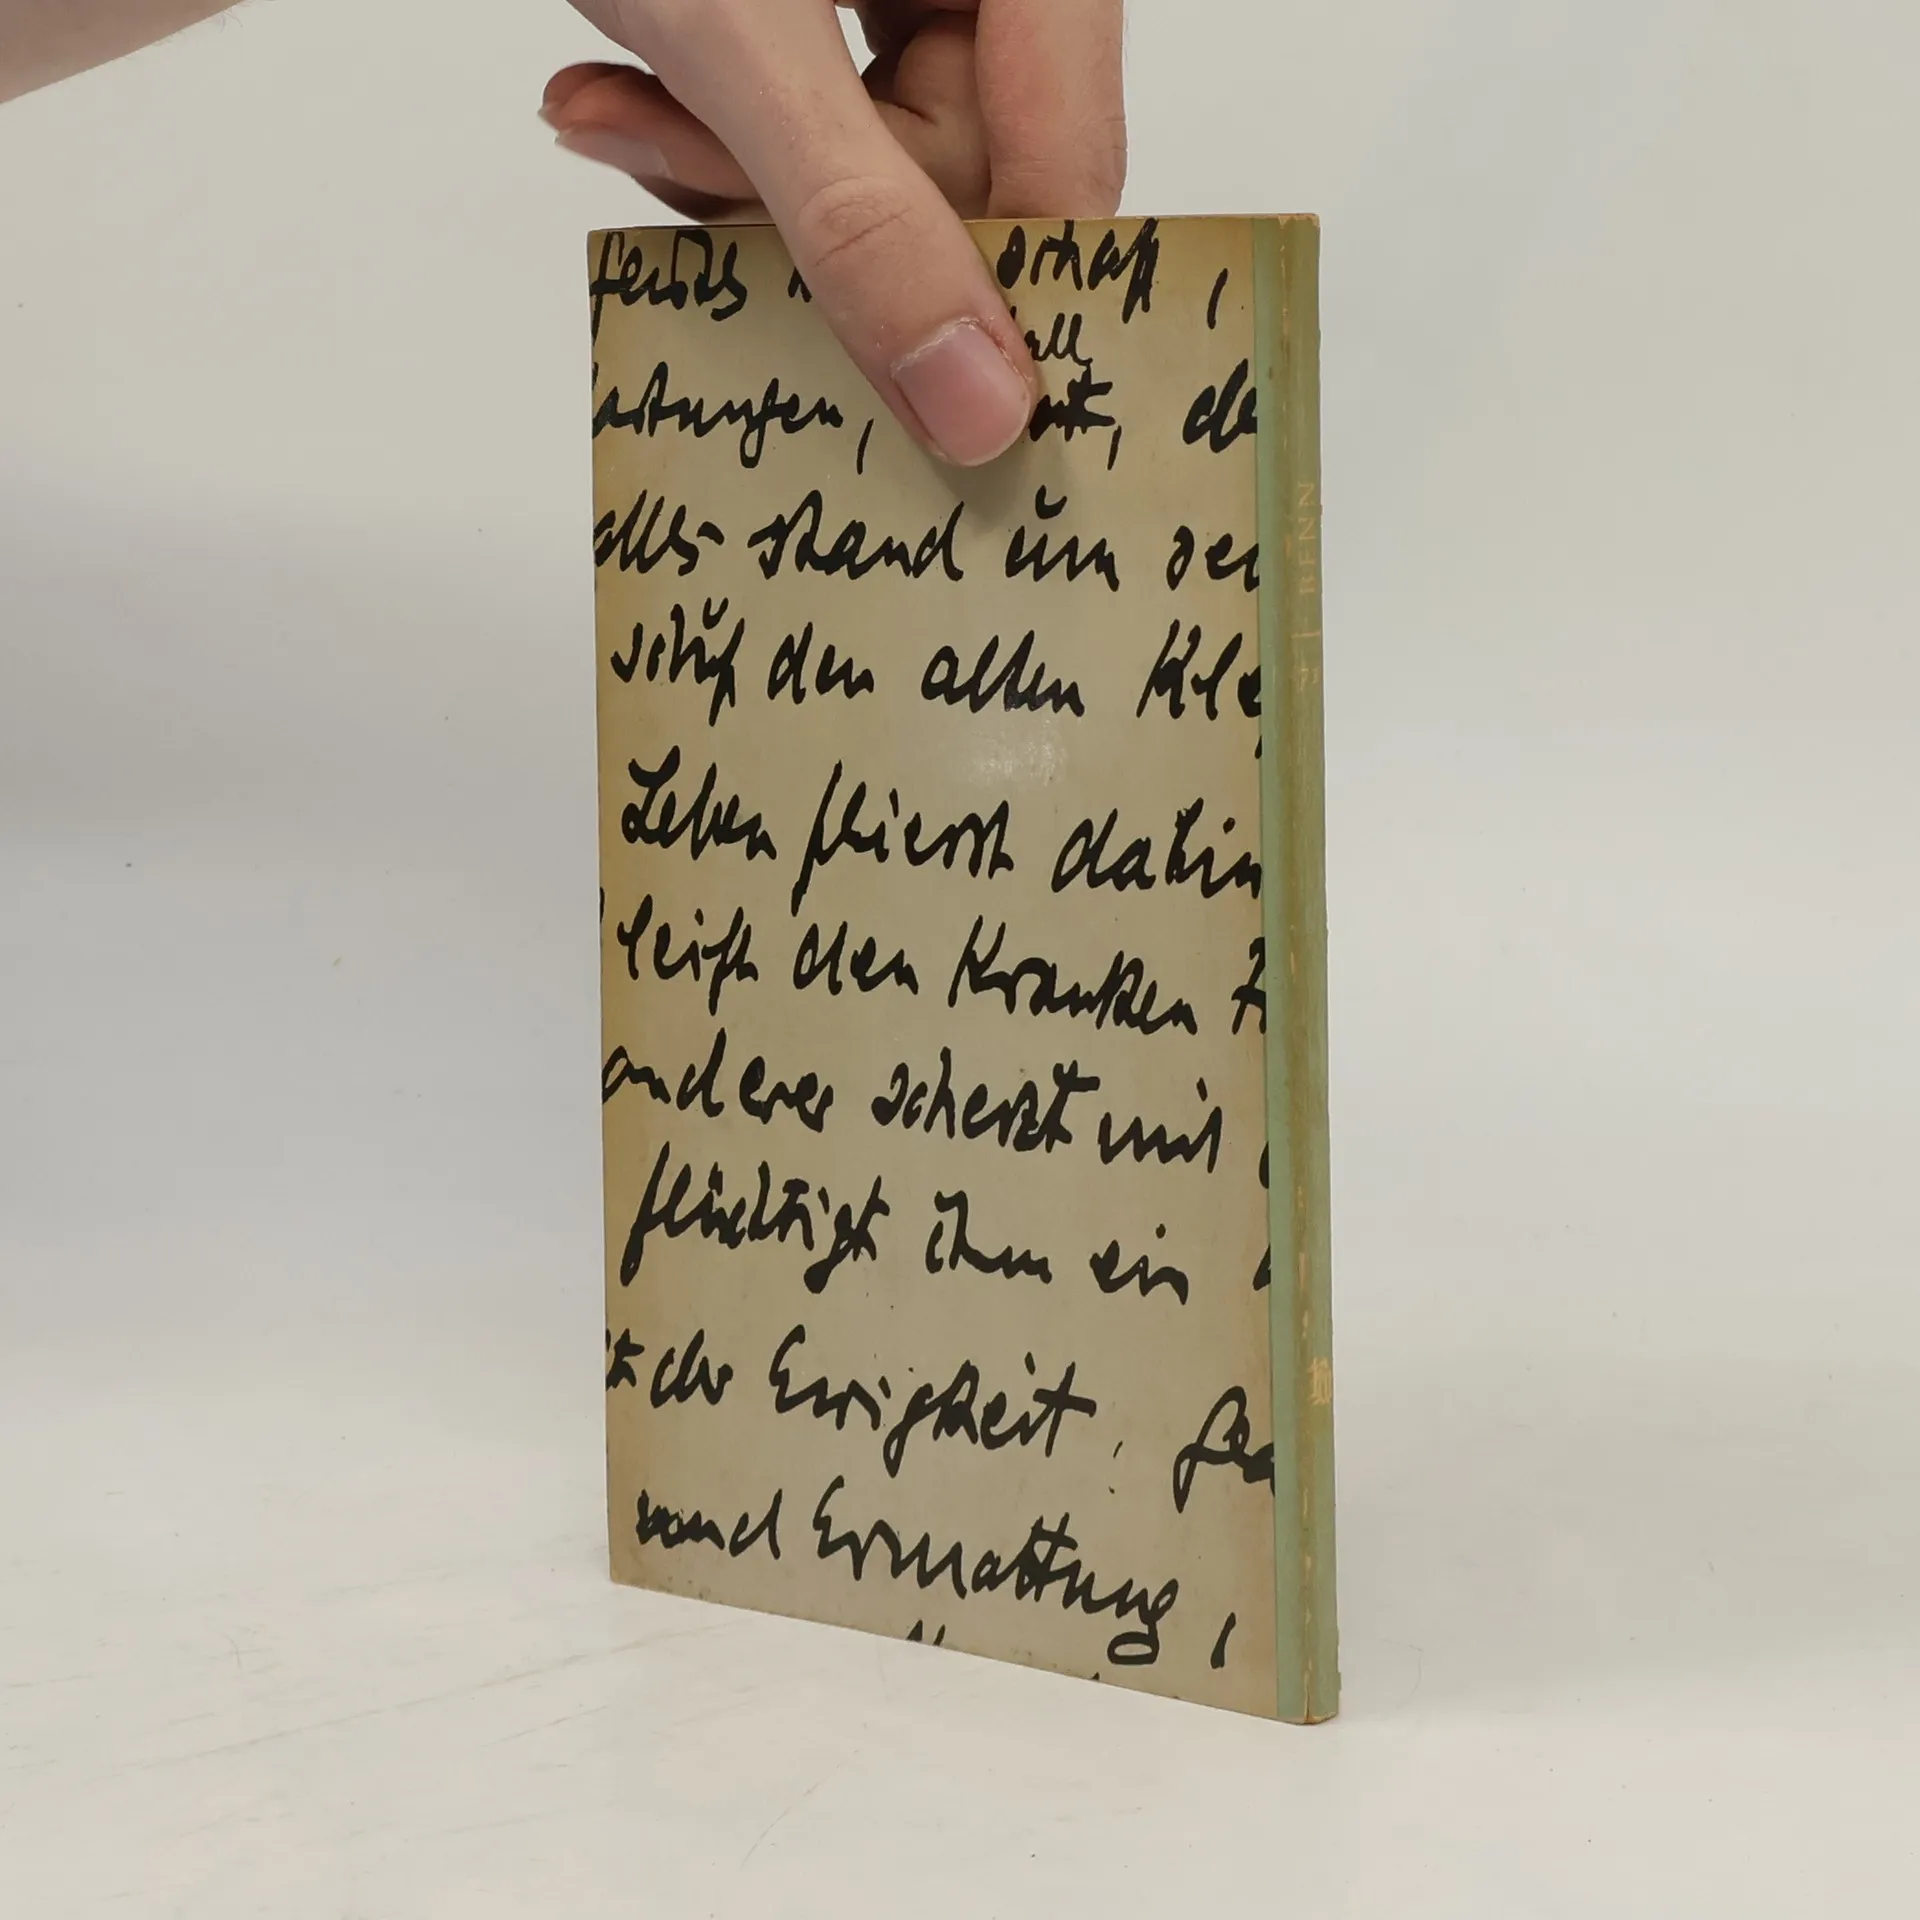 schaft,
all
astungen, de
alles stand um de
schuf den alten Kle
Leben fliesst dahin
leist den Kranken
anderer scherzt mit
flüchtigt ihm ein
der Ewigkeit,
wand Ermattung,
BENN